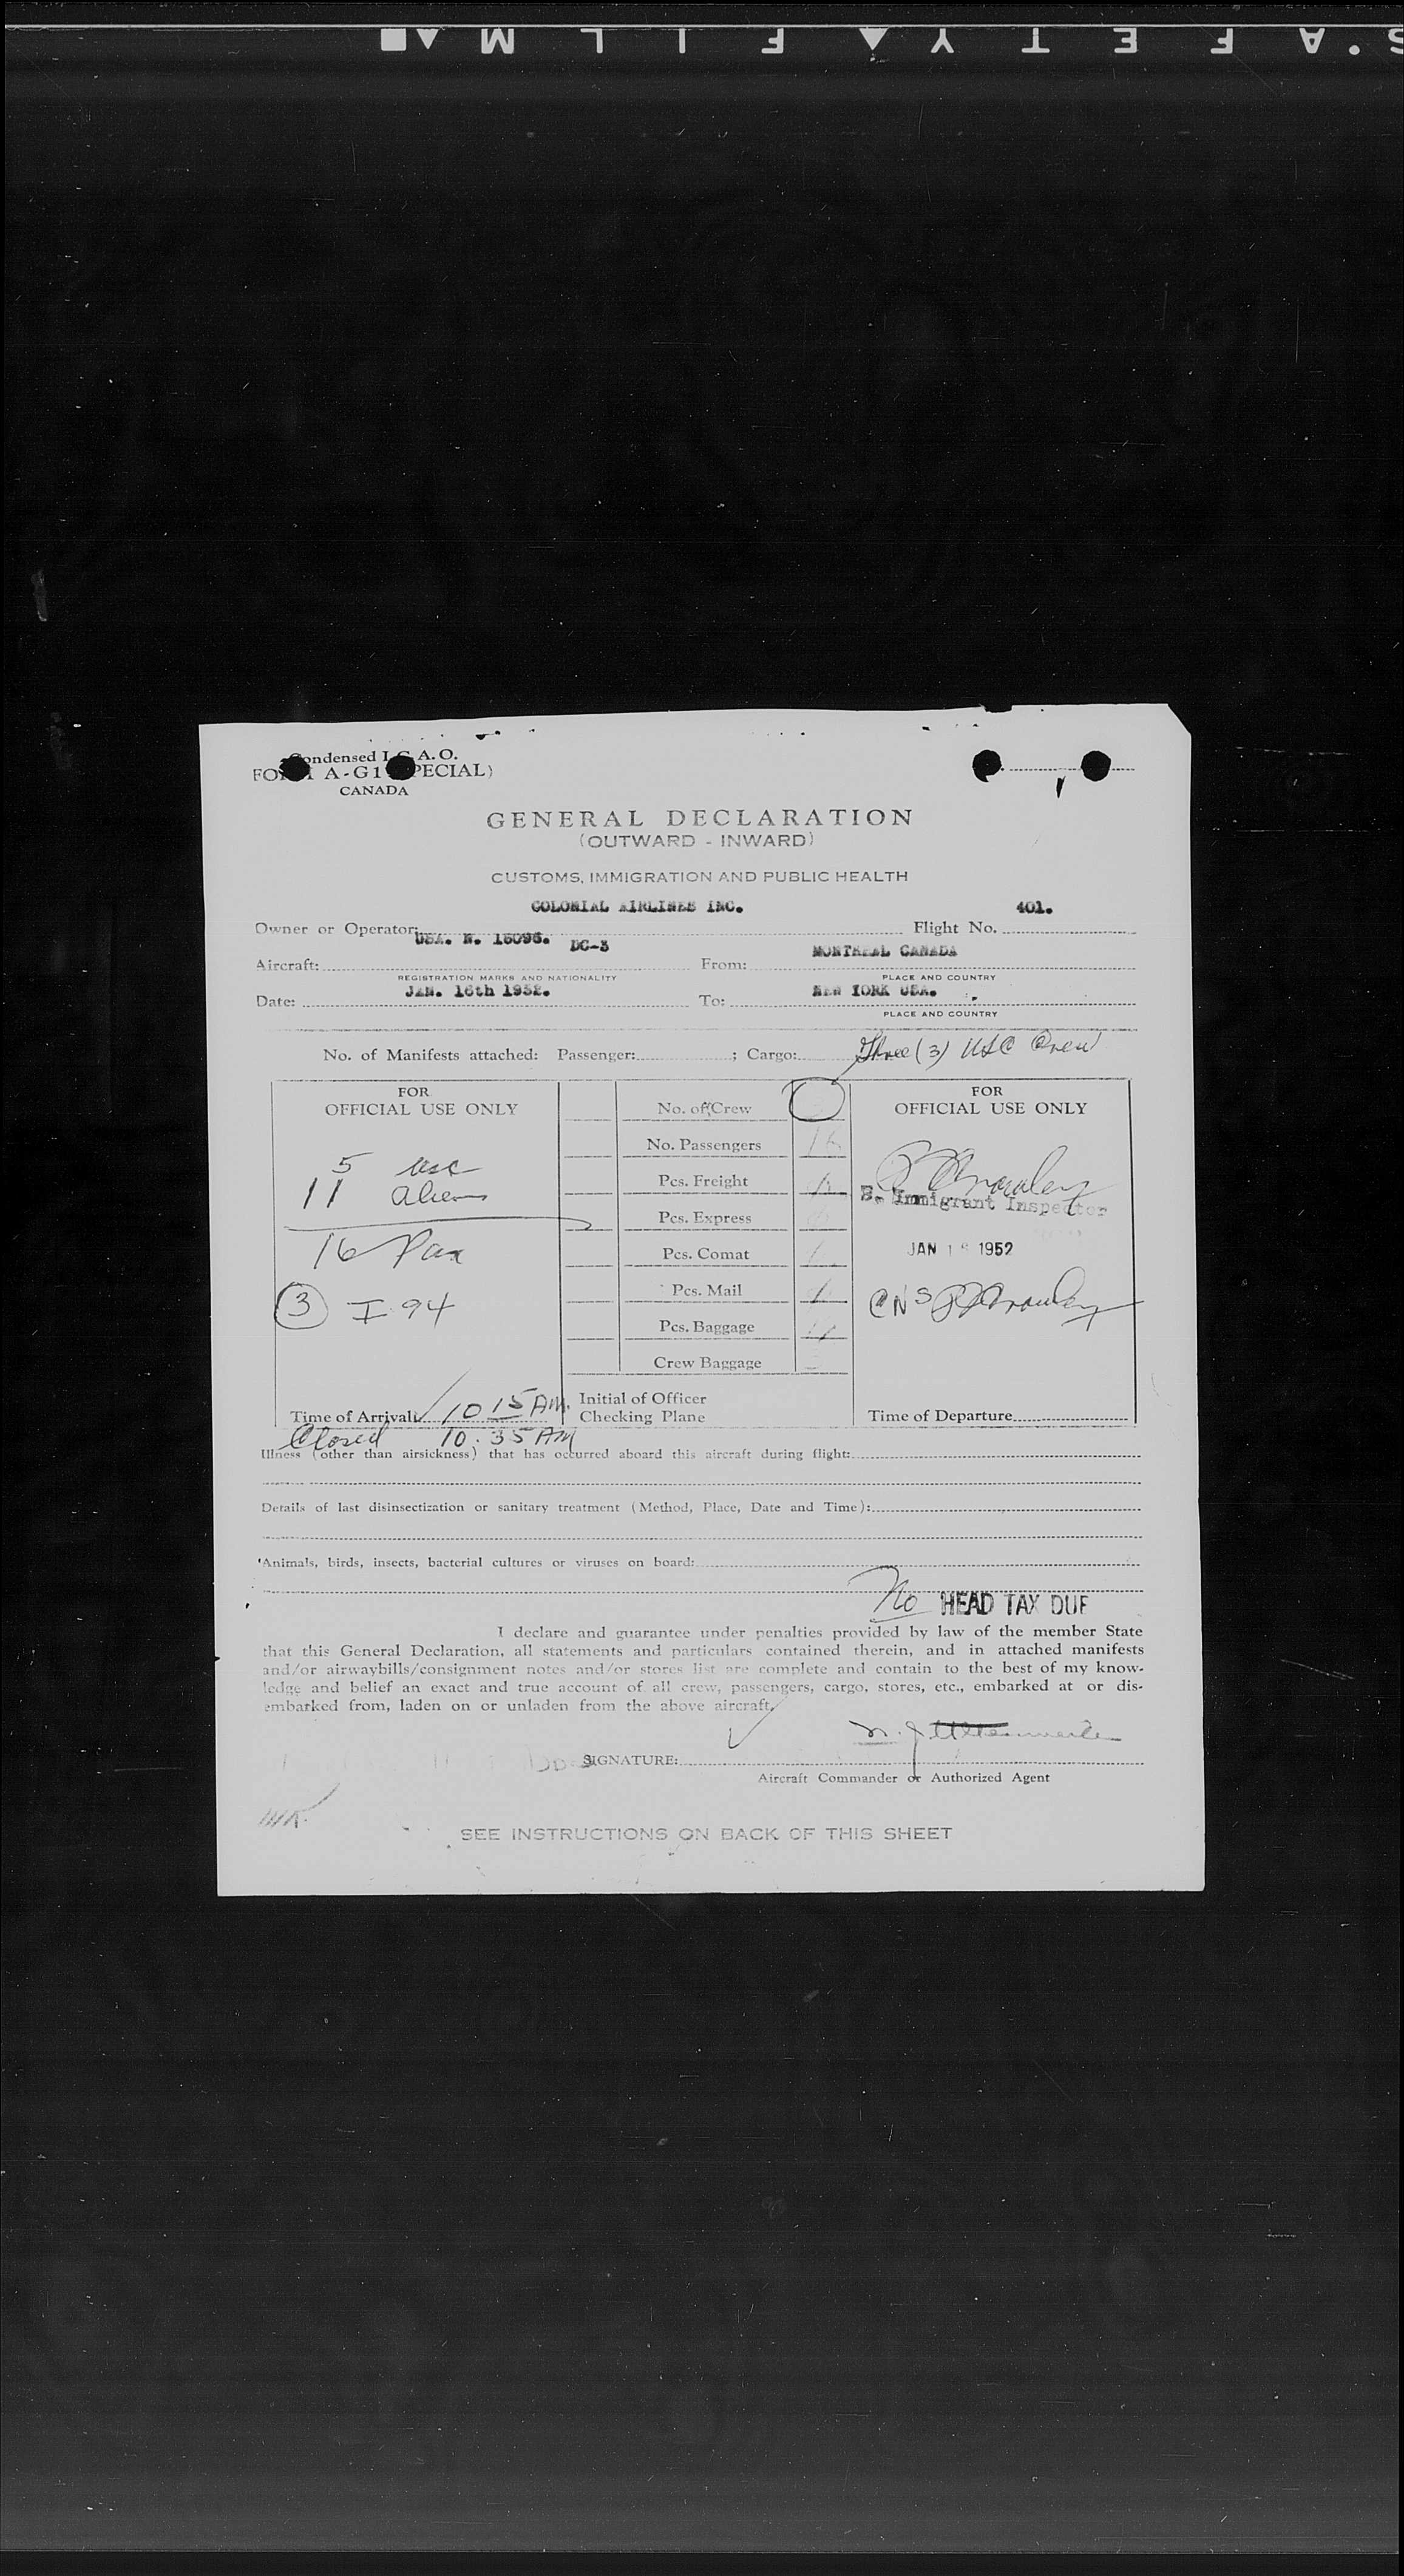 SAFETY FILM
Condensed I.C.A.O.
FORM A-G1 (SPECIAL)
CANADA
GENERAL DECLARATION
(OUTWARD - INWARD)
CUSTOMS, IMMIGRATION AND PUBLIC HEALTH
COLONIAL AIRLINES INC. 401.
Owner or Operator: Flight No.
USA. N. 15096. DC-3 MONTREAL CANADA
Aircraft: From:
REGISTRATION MARKS AND NATIONALITY PLACE AND COUNTRY
JAN. 16th 1952. NEW YORK USA.
Date: To:
PLACE AND COUNTRY
No. of Manifests attached: Passenger: ; Cargo: Three (3) USC Crew
FOR OFFICIAL USE ONLY
5 USC
11 Aliens
16 Pax
3 I-94
Time of Arrival: 10 15 AM.
Closed 10.35 AM
No. of Crew
No. Passengers 16
Pcs. Freight
Pcs. Express
Pcs. Comat
Pcs. Mail
Pcs. Baggage
Crew Baggage
Initial of Officer
Checking Plane
FOR OFFICIAL USE ONLY
Immigrant Inspector
JAN 16 1952
Time of Departure
Illness (other than airsickness) that has occurred aboard this aircraft during flight:
Details of last disinsectization or sanitary treatment (Method, Place, Date and Time):
Animals, birds, insects, bacterial cultures or viruses on board:
No HEAD TAX DUE
I declare and guarantee under penalties provided by law of the member State
that this General Declaration, all statements and particulars contained therein, and in attached manifests
and/or airwaybills/consignment notes and/or stores list are complete and contain to the best of my know-
ledge and belief an exact and true account of all crew, passengers, cargo, stores, etc., embarked at or dis-
embarked from, laden on or unladen from the above aircraft.
SIGNATURE:
Aircraft Commander or Authorized Agent
SEE INSTRUCTIONS ON BACK OF THIS SHEET